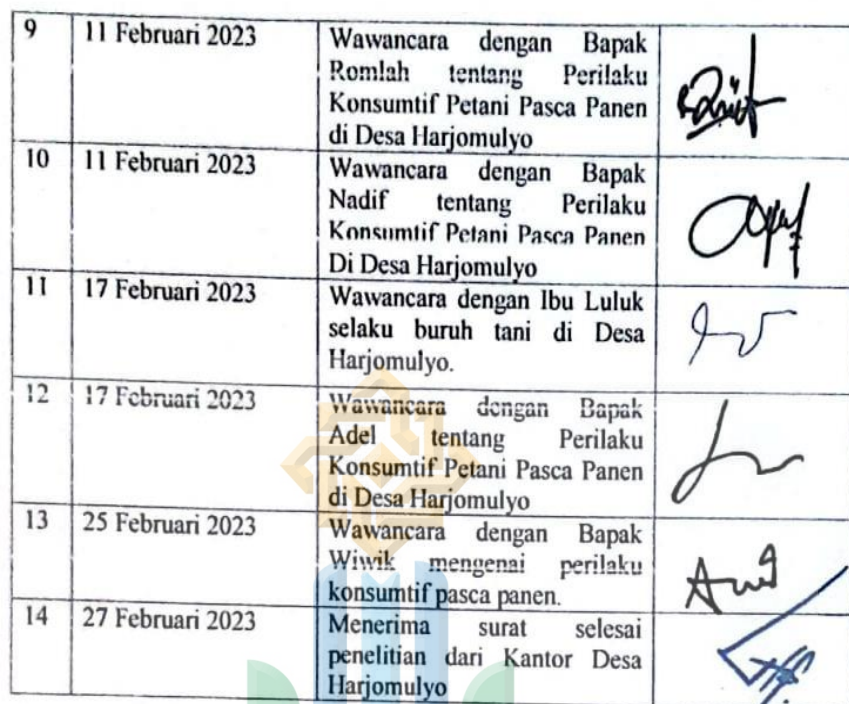 9 11 Februari 2023 Wawancara dengan Bapak
Romlah tentang Perilaku
Konsumtif Petani Pasca Panen
di Desa Harjomulyo
10 11 Februari 2023 Wawancara dengan Bapak
Nadif tentang Perilaku
Konsumtif Petani Pasca Panen
Di Desa Harjomulyo
11 17 Februari 2023 Wawancara dengan Ibu Luluk
selaku buruh tani di Desa
Harjomulyo.
12 17 Februari 2023 Wawancara dengan Bapak
Adel tentang Perilaku
Konsumtif Petani Pasca Panen
di Desa Harjomulyo
13 25 Februari 2023 Wawancara dengan Bapak
Wiwik mengenai perilaku
konsumtif pasca panen.
14 27 Februari 2023 Menerima surat selesai
penelitian dari Kantor Desa
Harjomulyo